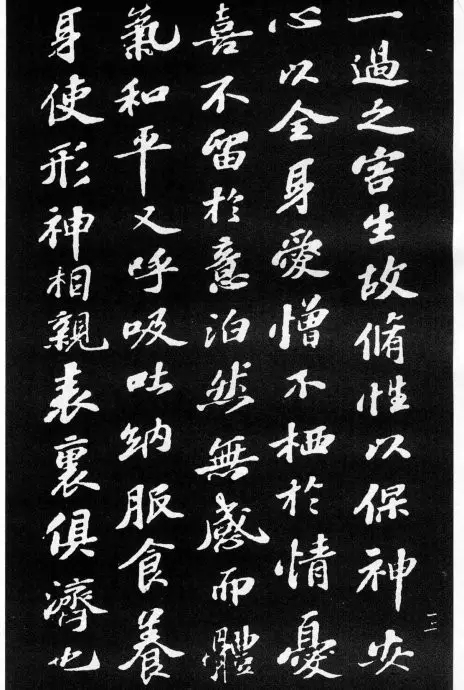 一過之害生故脩性以保神安
心以全身愛憎不栖於情憂
喜不留於意泊然無感而體
氣和平又呼吸吐納服食養
身使形神相親表裏俱濟也